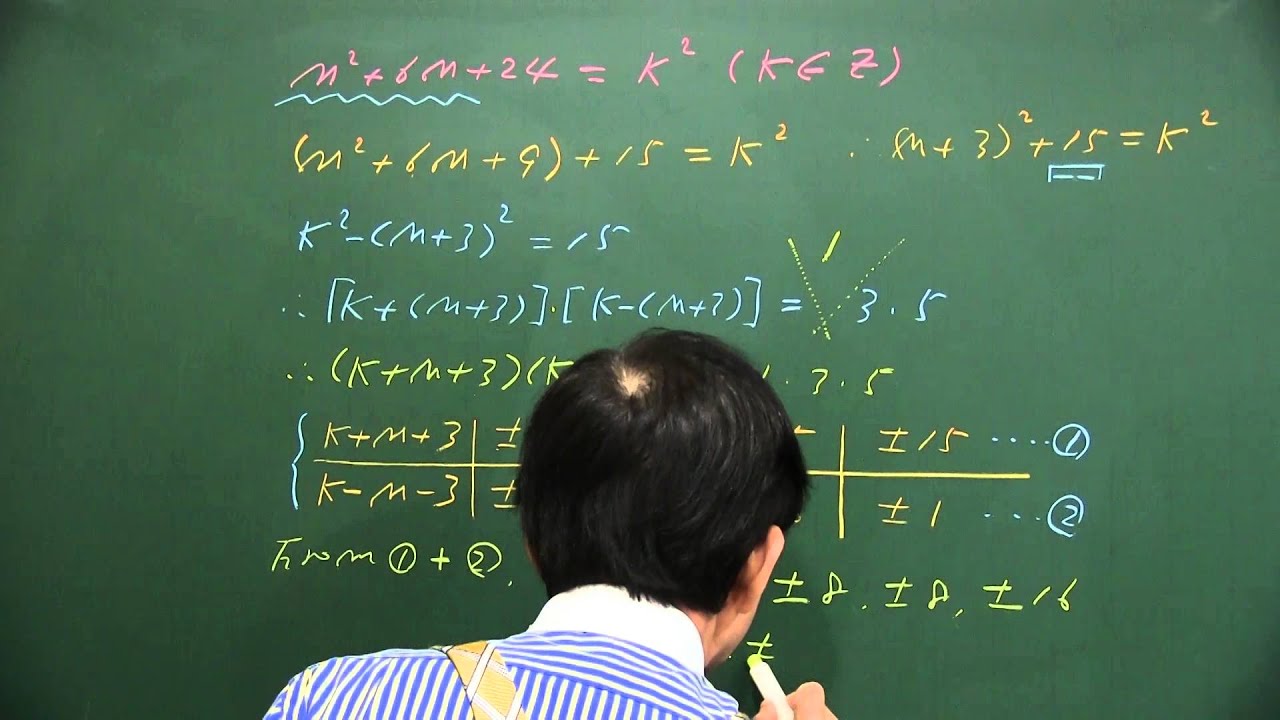 n² + 6n + 24 = K² (K ∈ Z)
(n² + 6n + 9) + 15 = K² ∴ (n + 3)² + 15 = K²
K² - (n + 3)² = 15
∴ [K + (n + 3)] · [K - (n + 3)] = 3 · 5
∴ (K + n + 3)(K 1 · 3 · 5
K + n + 3 ± ± 15 ···· ①
K - n - 3 ± ± 1 ··· ②
From ① + ②, ± 8, ± 8, ± 16
±